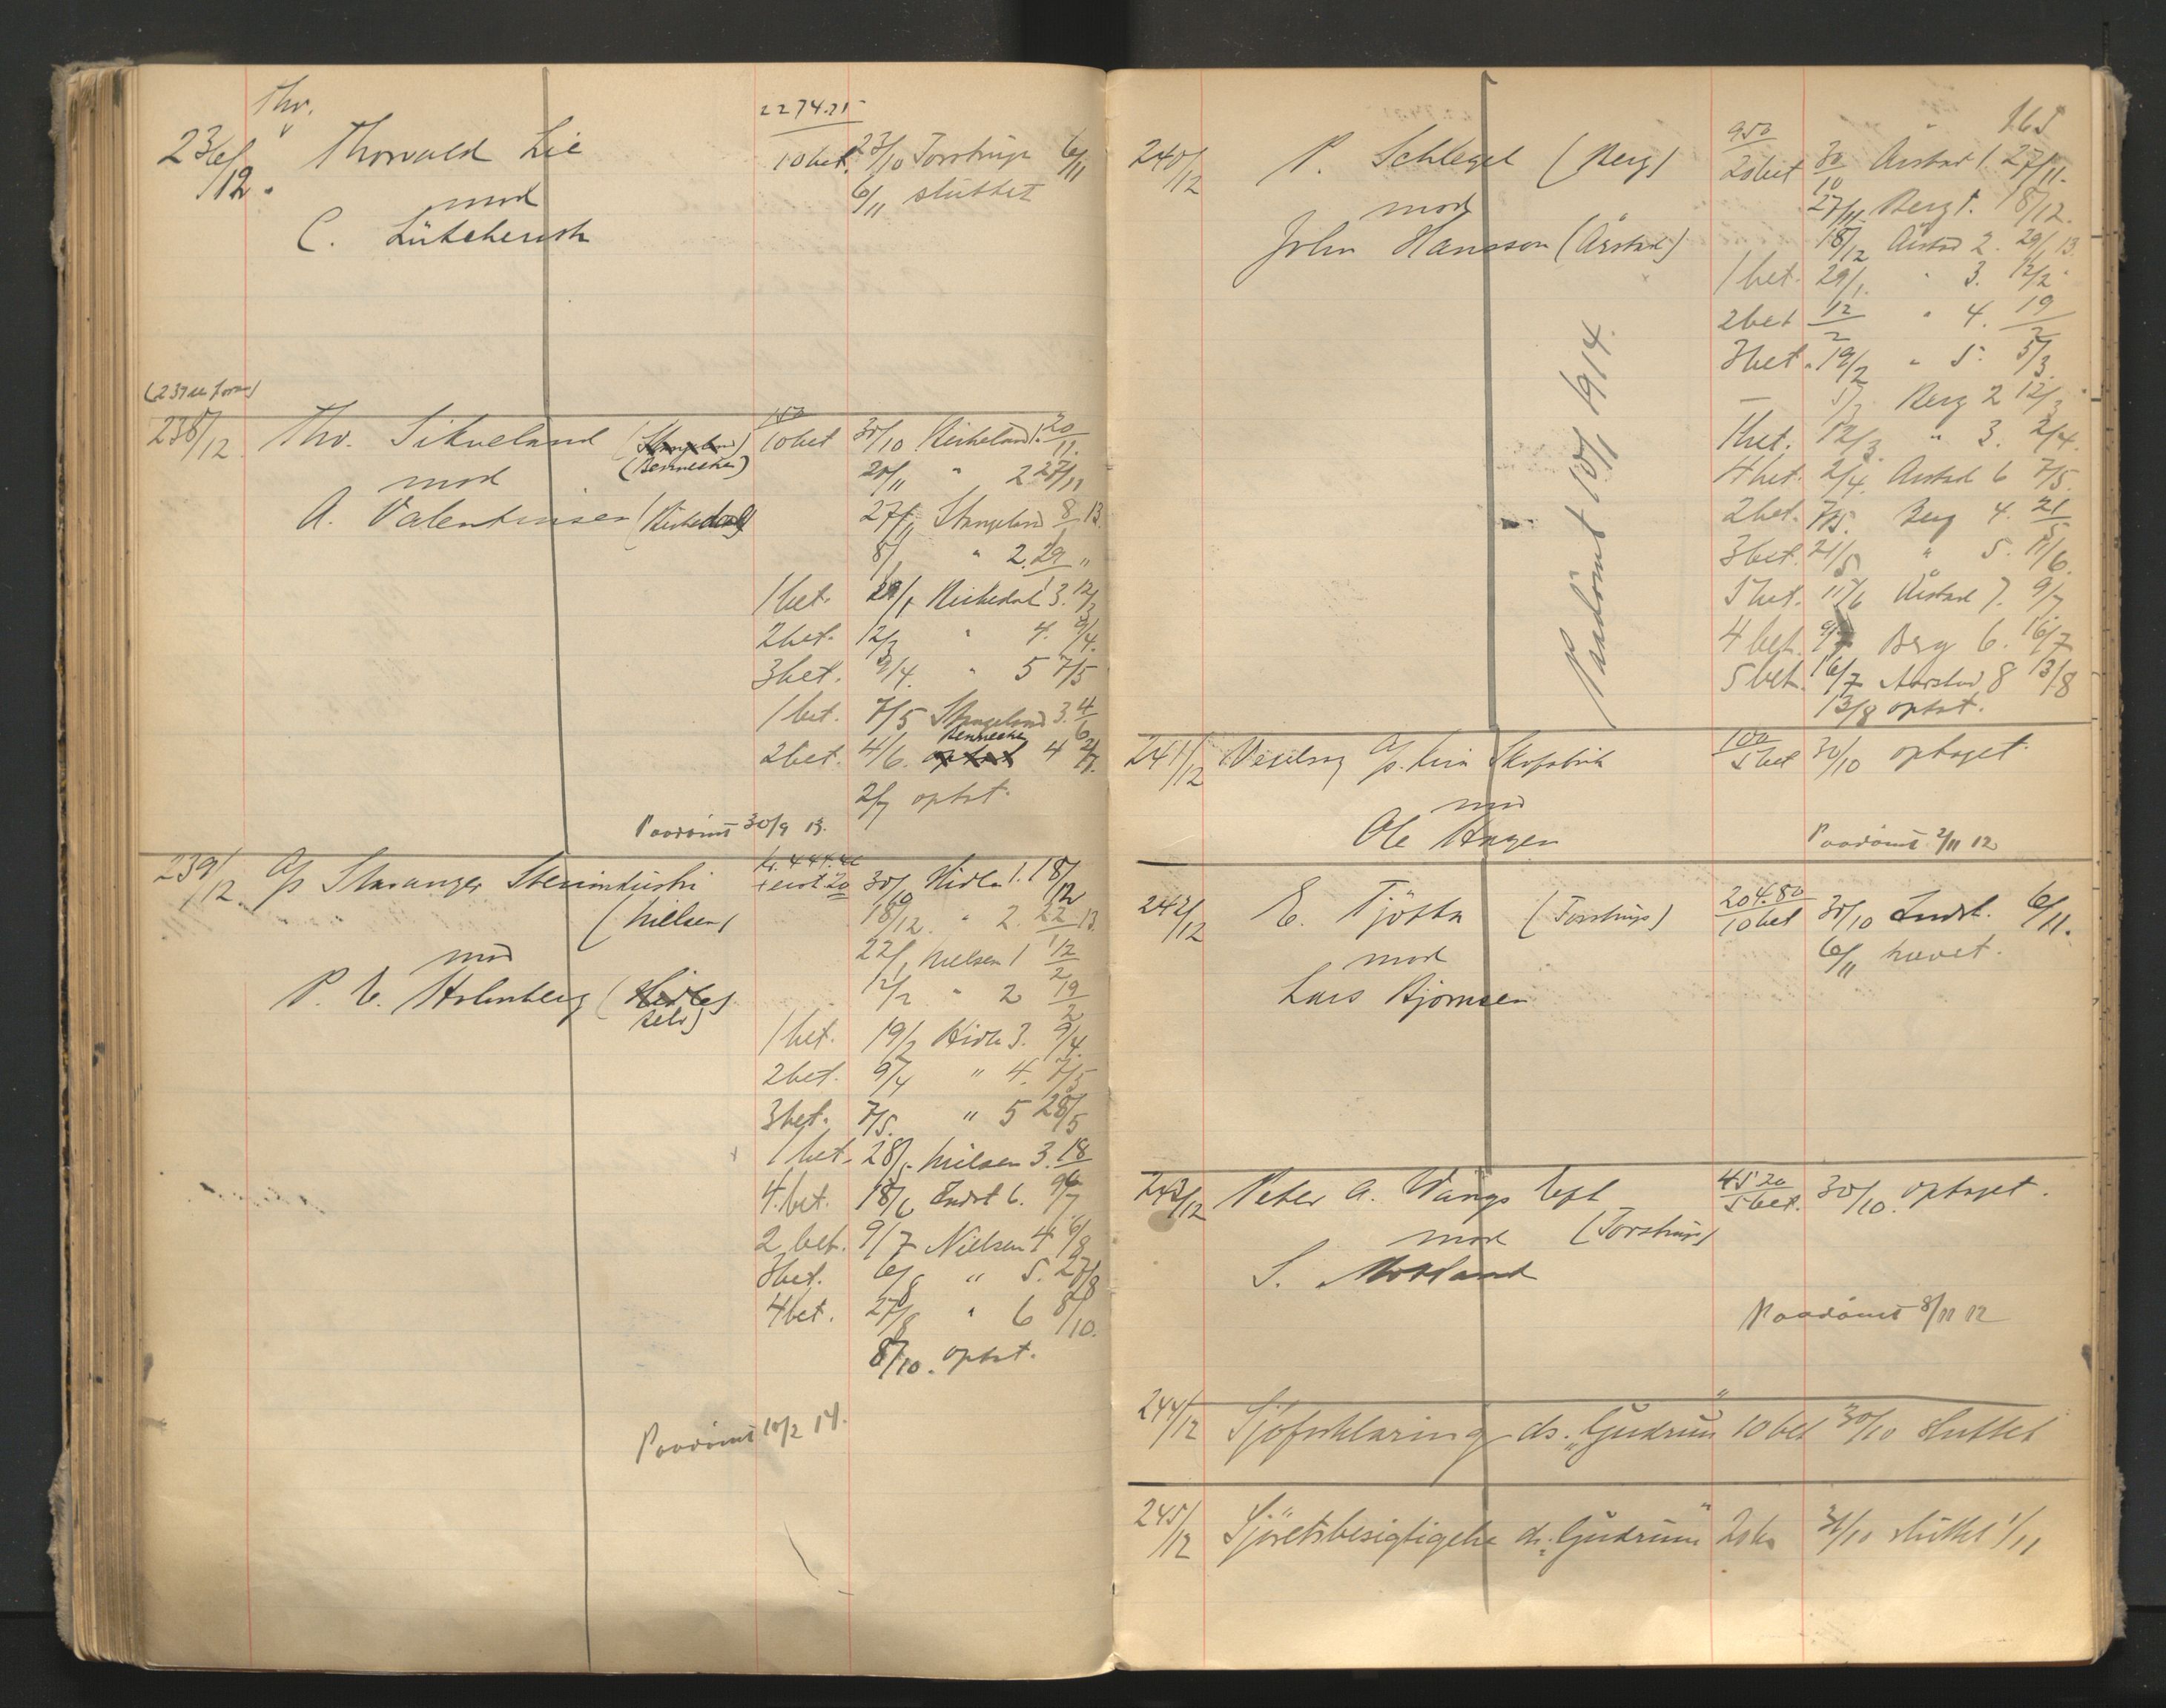 Thv.
236/12. Thorvald Lie
mod
C. Lütcherath
2274.21
10 bet. 23/10 Torstrup 6/11
6/11 sluttet
(237 se foran)
238/12 Thv. Sikveland (Stangeland)
(Bennechen)
mod
A. Valentinsen (Kirkedal)
150
10 bet 30/10 Kirkeland 1. 20/11.
20/11 " 2 27/11
27/11 Stangeland 8/1 13.
8/1 " 2. 29/1 "
1 bet. 29/1 Kirkedal 3. 12/3
2 bet. 12/3 " 4. 9/4.
3 bet. 9/4. " 5 7/5
1 bet. 7/5 Stangeland 3. 4/6
2 bet. 4/6. optat Bennechen 4 2/7.
2/7 optat.
Paadömt 30/9 13.
239/12. A/s Stavanger Stenindustri
(Nielsen)
mod
P. E. Holmberg (Hidle)
selv)
kr. 444.46
30/10 Hidle 1. 18/12
18/12. " 2. 22/1 13.
22/1 Nielsen 1 12/2
12/2 " 2 19/2
1 bet. 19/2 Hidle 3. 9/4.
2 bet. 9/4 " 4. 7/5
3 bet. 7/5. " 5 28/5
1 bet. 28/5. Nielsen 3. 18/6
4. bet. 18/6 Indst 6. 9/7
2 bet. 9/7 Nielsen 4 6/8
3 bet. 6/8 " 5. 27/8
4 bet. 27/8 " 6 8/10.
8/10. optat.
Paadömt 10/2 14.
165
240/12 P. Schlegel (Berg)
mod
John Hansson (Årstad)
950
20 bet 30/10 Årstad 1. 27/11.
27/11 Berg 1. 18/12.
18/12 Årstad 2. 29/1 13.
1 bet. 29/1. " 3. 12/2
2 bet 12/2 " 4. 19/2
3 bet. 19/2 " 5. 5/3.
5/3 Berg 2 12/3
1 bet. 12/3. " 3. 2/4.
4 bet. 2/4. Årstad 6 7/5.
2 bet. 7/5. Berg 4. 21/5
3 bet. 21/5 " 5. 11/6.
5 bet. 11/6 Årstad 7. 9/7
4 bet. 9/7 Berg 6. 16/7
5 bet. 16/7 Aarstad 8 13/8
13/8 optat.
Paadömt 10/1 1914.
241/12 Vexelsag A/s. Skofabrik
mod
Ole Hagen
100
5 bet 30/10 optaget.
Paadömt 2/11 12
242/12 E. Tjötta (Torstrup)
mod
Lars Bjornsen
204.80
10 bet 30/10 Indst. 6/11.
6/11 hævet.
243/12 Peter A. Vangs Eftf
mod (Torstrup)
S. Mokland
45 20
5 bet. 30/10. optaget.
Paadömt 8/11 12
244/12 Sjöforklaring ds. „Gudrun" 10 bet 30/10 sluttet
245/12 Sjöretsbesigtigelse ds. „Gudrun" 20 31/10 sluttet 1/11